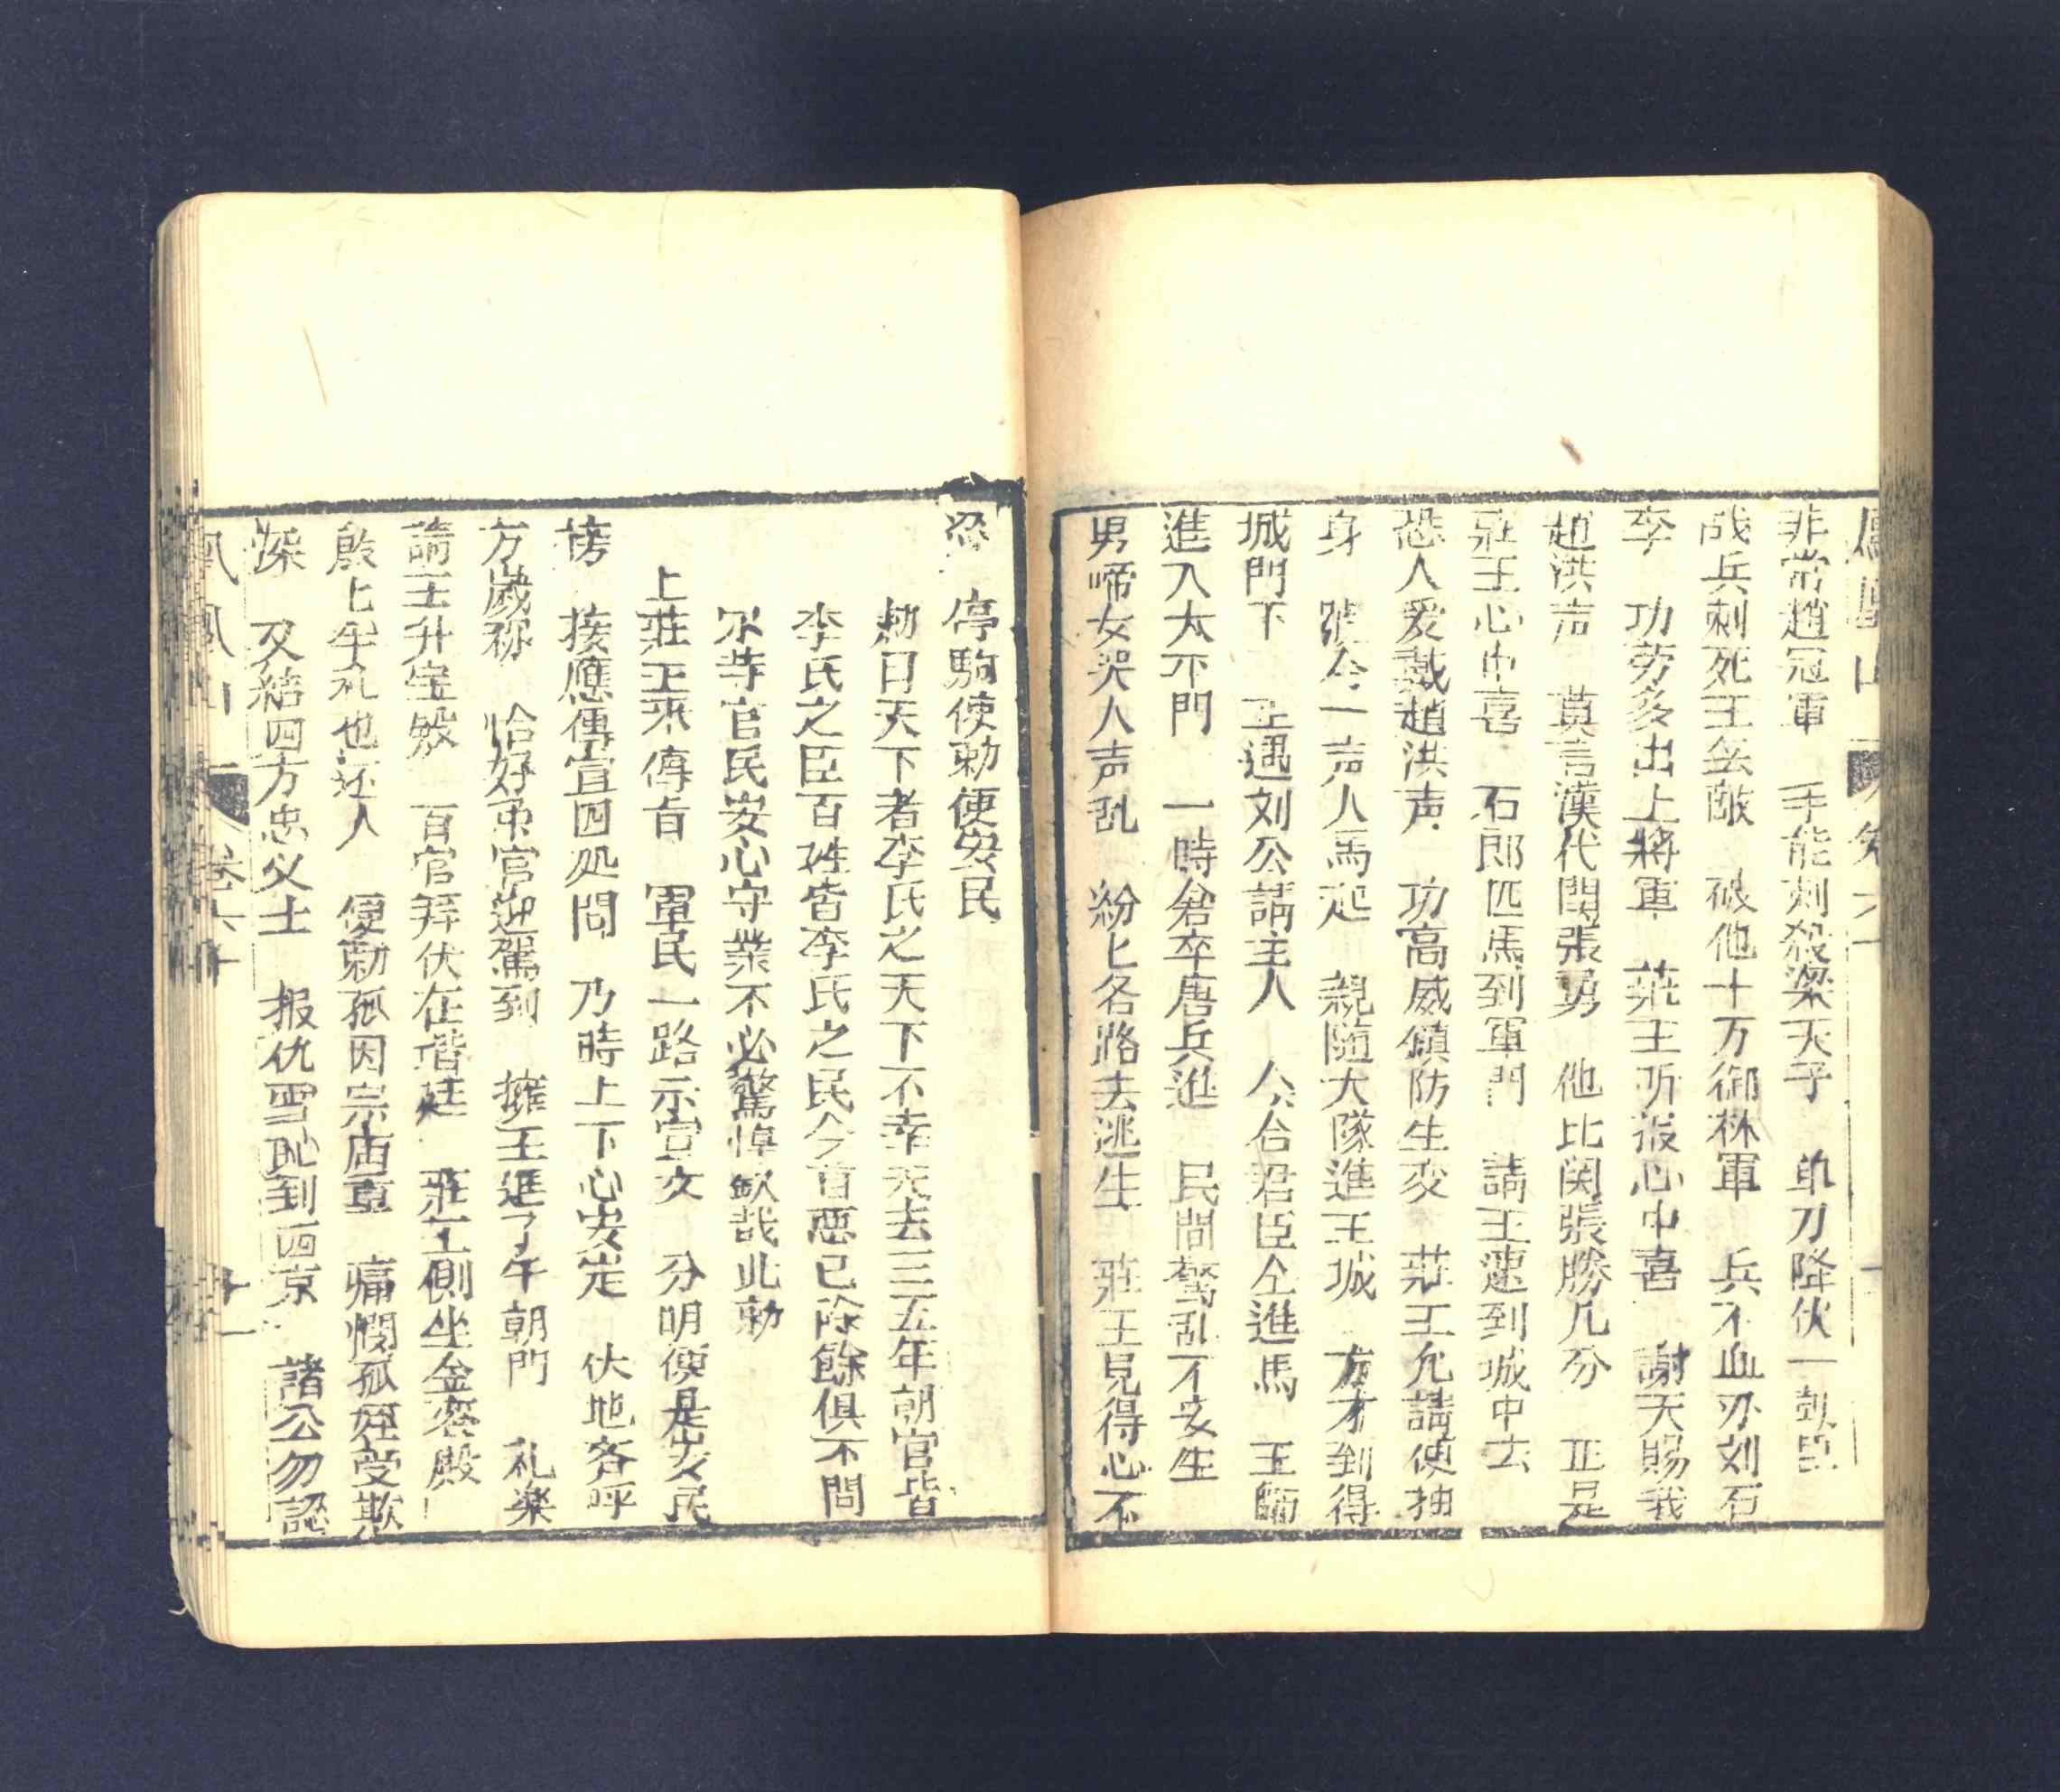 鳳凰山 卷六 十
非常趙冠軍 手能刺殺梁天子 单刀降伏一彪
成兵刺死王无敵 破他十万御林軍 兵不血刃刘石
李 功劳多出上將軍 莊王听报心中喜 謝天賜我
趙洪声 莫言漢代関張勇 他比関張勝几分 正是
莊王心中喜 石郎匹馬到軍門 請王速到城中去
恐人爱戴趙洪声 功高威鎮防生变 莊王允請便抽
身 號令一声人馬起 親随大隊進王城 方才到得
城門下 上遇刘公請主人 公合君臣仝進馬 王師
進入大不門 一時倉卒唐兵進 民間驚乱不安生
男啼女哭人声乱 紛匕各路去逃生 莊王見得心不
忍 停駒使勅便安民
勅曰天下者李氏之天下不幸先去三五年朝官皆
李氏之臣百姓皆李氏之民今首惡已除餘俱不問
尔等官民安心守業不必驚惶欽哉此勅
上莊王來傳旨 軍民一路示宣文 分明便是安民
榜 接應傳宣四処問 乃時上下心安定 伏地各呼
万歲称 恰好币官迎駕到 擁王進了午朝門 礼楽
請王升宝殿 百官拜伏在堦廷 莊王側坐金鸾殿
殷匕年礼也还人 便勅孤因宗庙重 痛憫孤姪受欺
深 又結四方忠义士 报仇雪耻到西京 諸公勿認
鳳凰山 卷六 十一